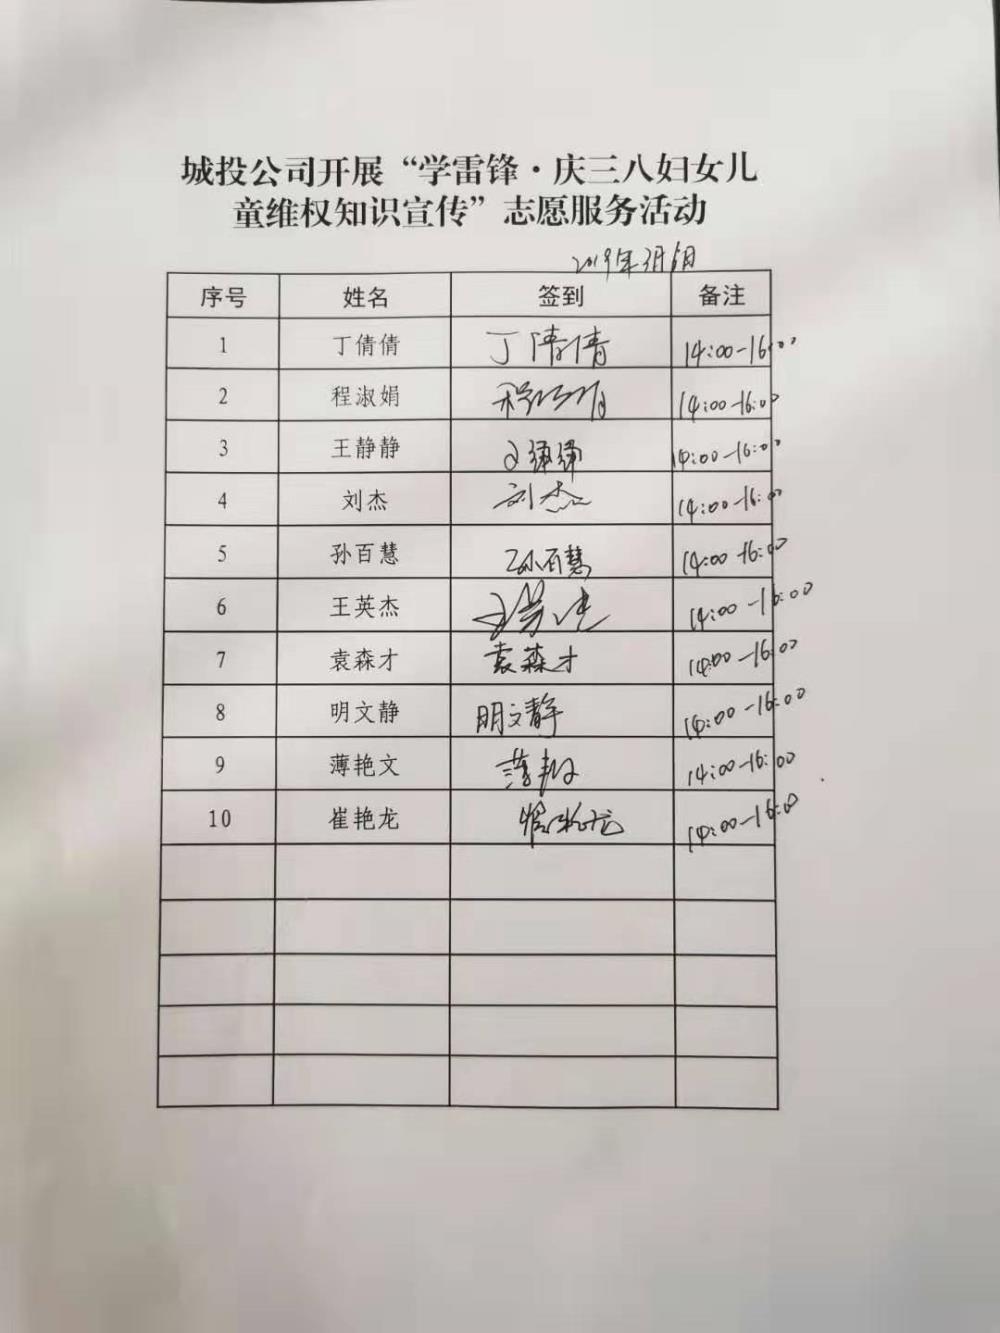 城投公司开展“学雷锋·庆三八妇女儿
童维权知识宣传”志愿服务活动
2019年3月6日
序号 姓名 签到 备注
1 丁倩倩 丁倩倩 14:00-16:00
2 程淑娟 程淑娟 14:00-16:00
3 王静静 王静静 14:00-16:00
4 刘杰 刘杰 14:00-16:00
5 孙百慧 孙百慧 14:00-16:00
6 王英杰 王英杰 14:00-16:00
7 袁森才 袁森才 14:00-16:00
8 明文静 明文静 14:00-16:00
9 薄艳文 薄艳文 14:00-16:00
10 崔艳龙 崔艳龙 14:00-16:0